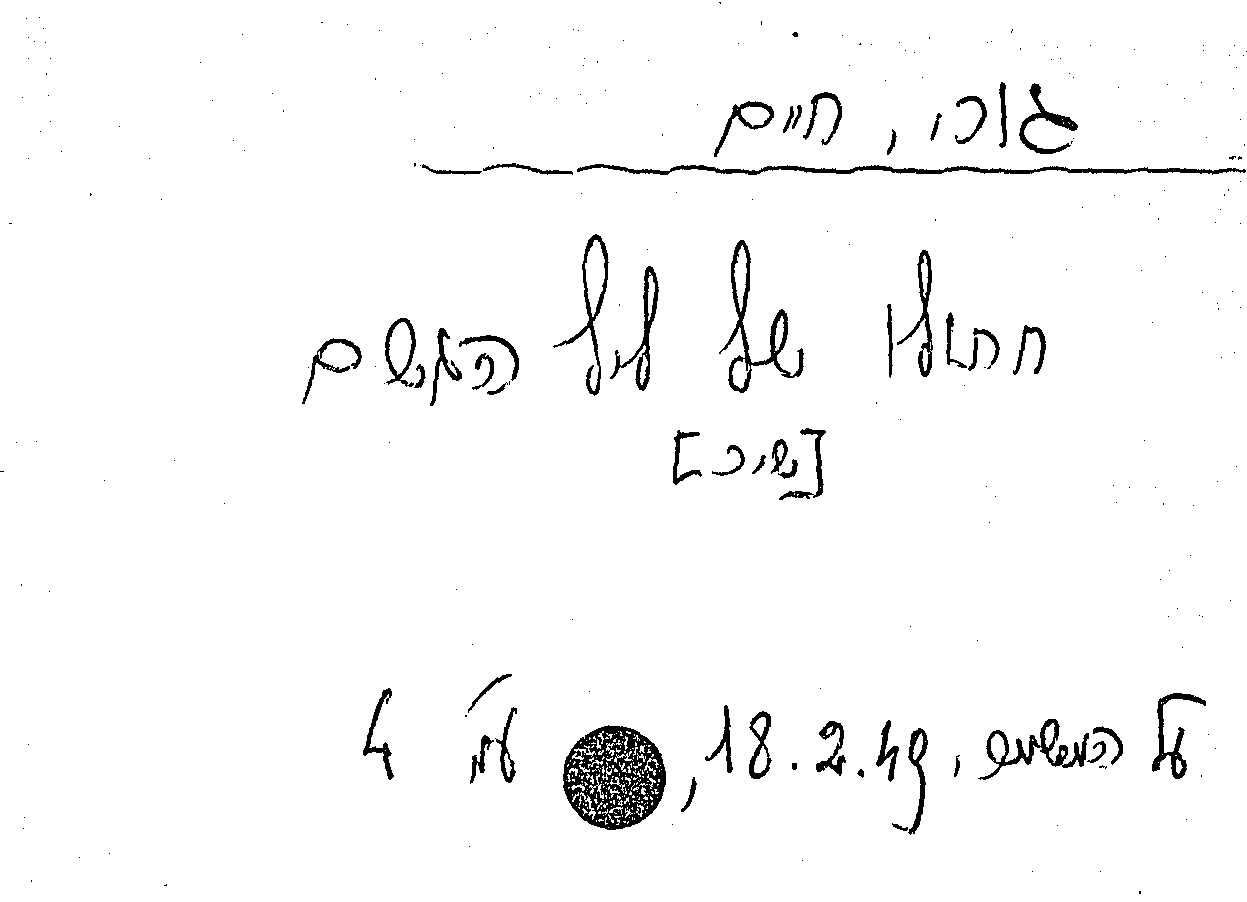 גורי, חיים
חתולו של ליל הגשם
[שיר]
על המשמר, 18.2.49, עמ' 4